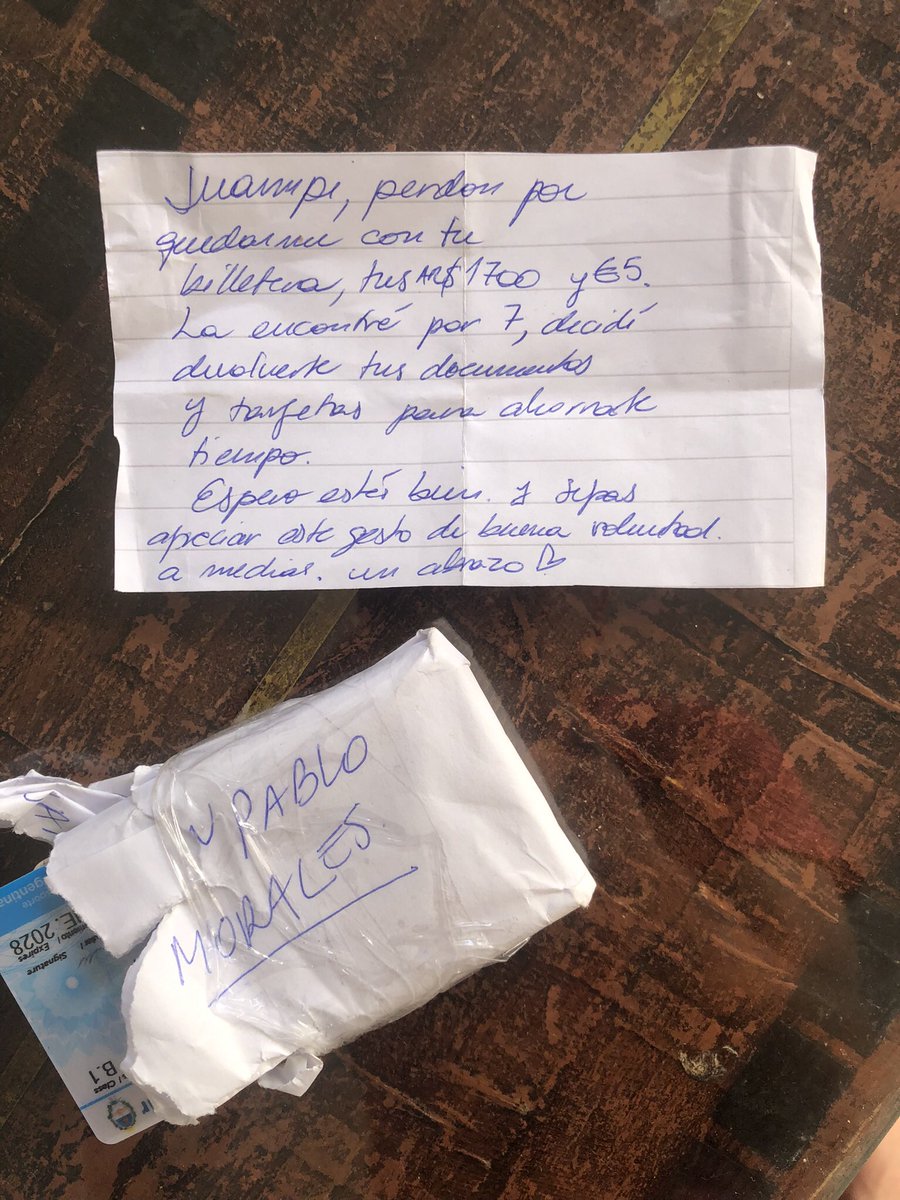 Juampi, perdon por
quedarme con tu
billetera, tus AR$1700 y €5.
La encontré por 7, decidí
devolverte tus documentos
y tarjetas para ahorrarte
tiempo.
Espero estés bien. y sepas
apreciar este gesto de buena voluntad.
a medias. un abrazo
PABLO
MORALES
gentina
Expires
2028
Signature
Class
B.1